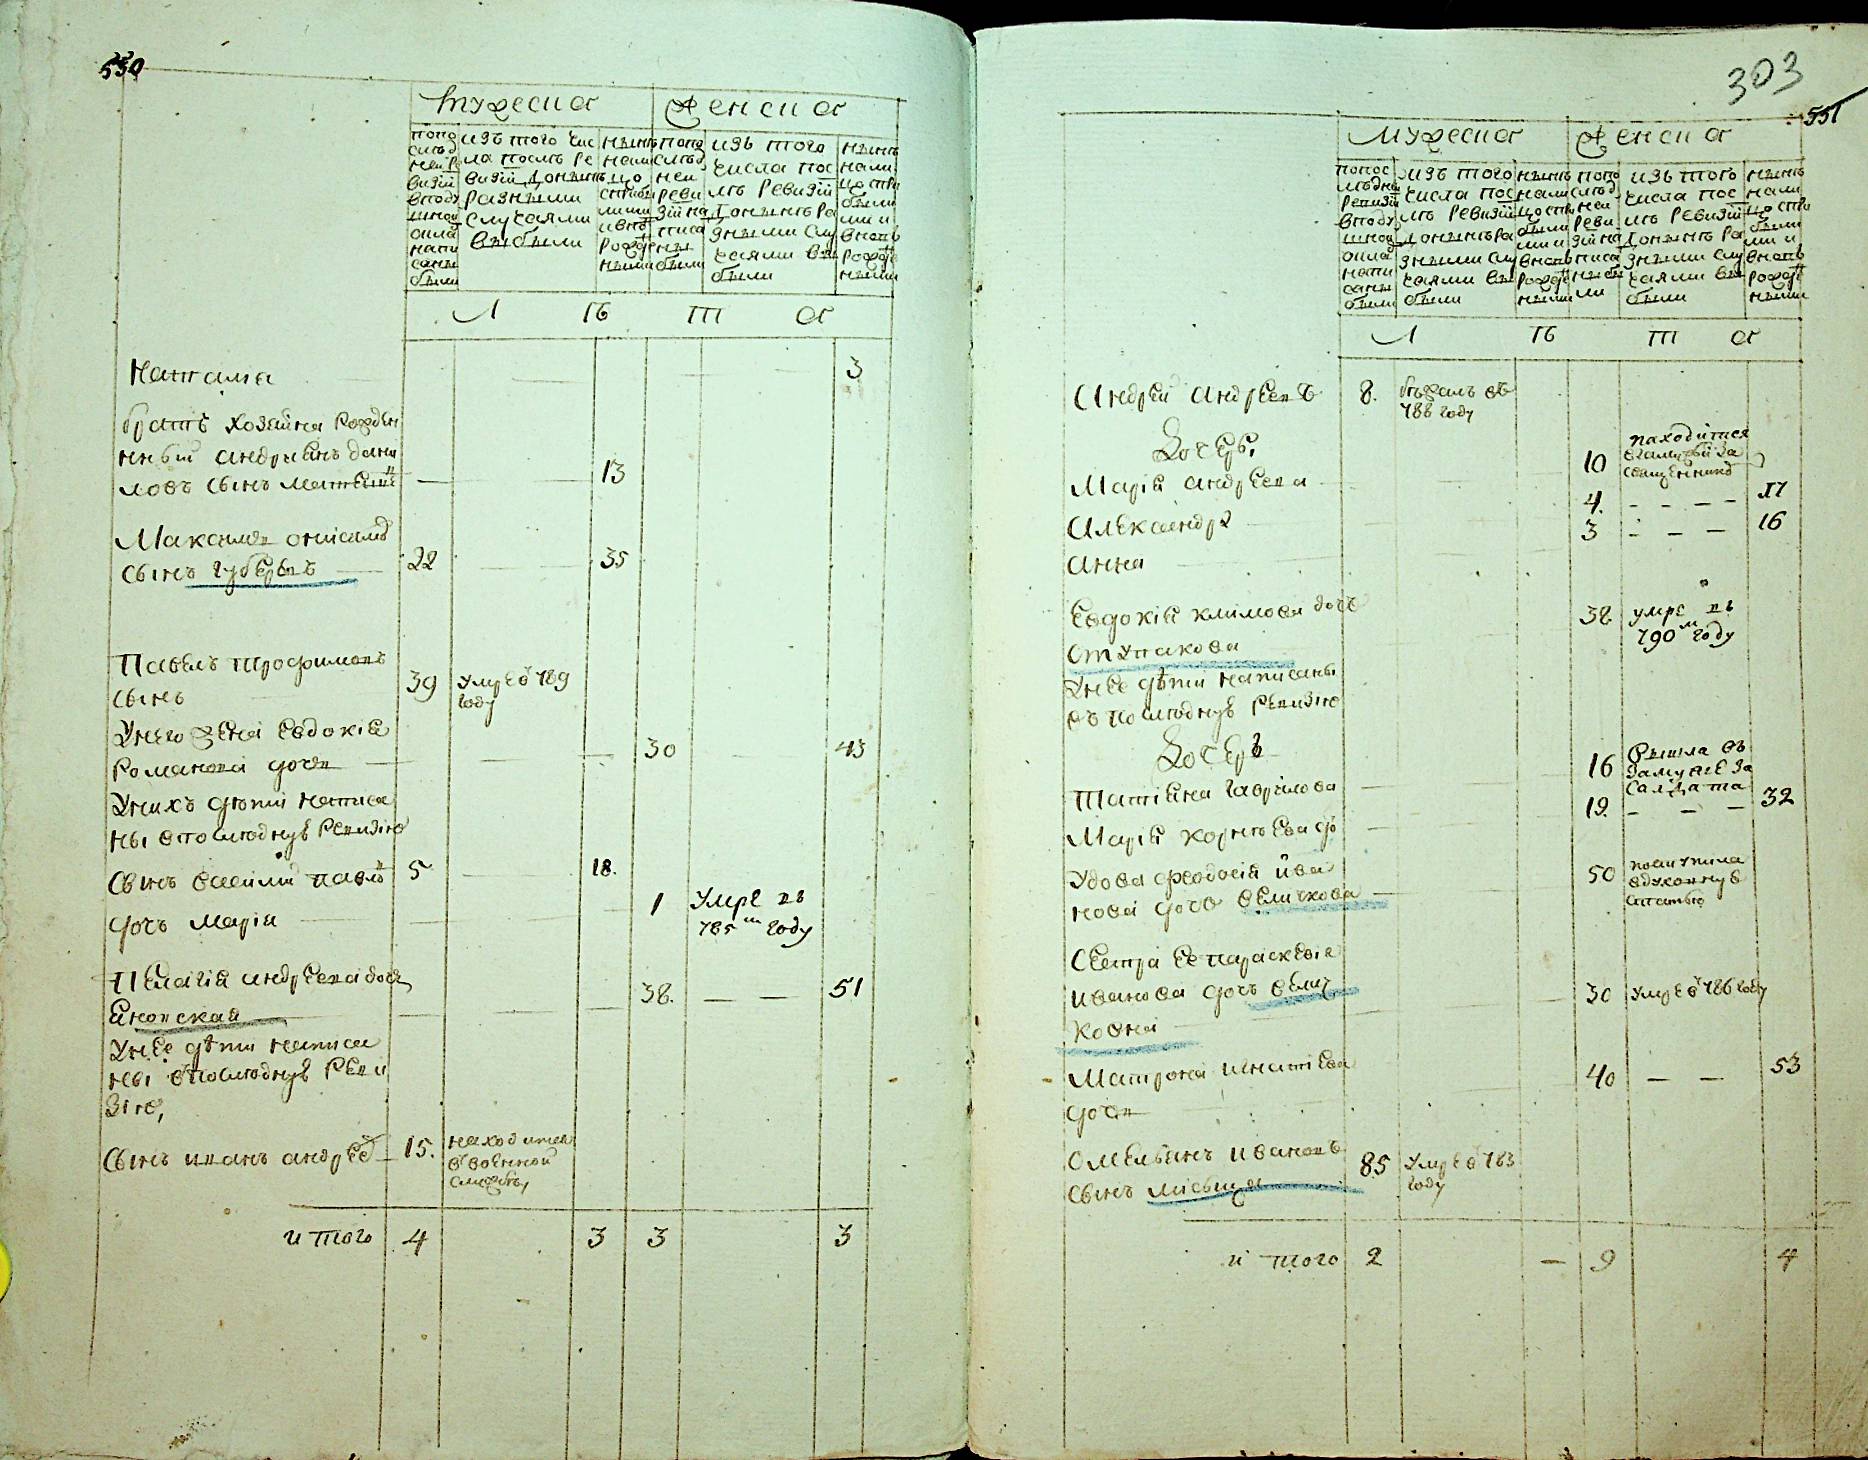 530
Мужеска
Женска
попо
слѣд
ней ре
визiй
вподу
шной
окла
напи
саны
были
изъ того чис
ла послѣ ре
визiй донынѣ
разными
случаями
выбыли
нынѣ
нали
цо
попо
слѣд
ней
реви
зiй на
писа
ны
были
изъ того
числа пос
лѣ ревизiй
донынѣ ра
зными слу
чаями вы
были
нынѣ
нали
цо
были
ми и
вновь
рожде
ными
Л Ѣ Т А
Наталiя 3
братъ хозяина рожден
нный андрианъ дани
ловъ сынъ 13
Максимъ
сынъ губеревъ 22 35
Павелъ трофимовъ
сынъ 39 умре в 789
году
Унего жена евдокiя
романова дочь 30 43
Унихъ дѣти написа
ны впослѣдную ревизiю
Сынъ василий павло 5 18.
дочь марiя 1 Умре въ
785 м году
Пелагiя андреева доч
яновская 38. 51
Унее дѣти написа
ны впослѣдную реви
зiю,
Сынъ иванъ андрее 15. находится
ввоенной
службы,
итого 4 3 3 3
303
551
Мужеска
Женска
попос
лѣдней
ревизiй
вподу
шной
окла
напи
саны
были
изъ того
числа пос
лѣ ревизiй
донынѣ ра
зными слу
чаями вы
были
нынѣ
нали
цо
были
ми и
вновь
рожде
ными
попо
слѣд
ней
реви
зiй на
писа
ны бы
ли
изъ того
числа пос
лѣ ревизiй
донынѣ ра
зными слу
чаями вы
были
нынѣ
нали
цо
были
ми и
вновь
рожде
ными
Л Ѣ Т А
Андрей андреевъ 8. бѣжалъ въ
788 году
Дочерь,
Марiя андреева 10 находится
взамужи за
священникъ
Александра 4. 17
Анна 3 16
Евдокiя климова дочь
Ступакова 38 умре въ
790 м году
Унее дѣти написаны
въ послѣдную ревизiю
Дочерь
Татiяна гаврилова 16 вышла въ
замужъ за
салдата
Марiя корнѣева до 19. 32
Удова феодосiя ива
нова дочь величкова 50 поступила
вдуховную
статью
Сестра ее параскевiя
иванова дочь велич
ковна 30 умре в 786 году
Матрона игнатiева
дочь 40 53
Омельянъ ивановъ
сынъ лисыця 85 умре в 783
году
итого 2 9 4